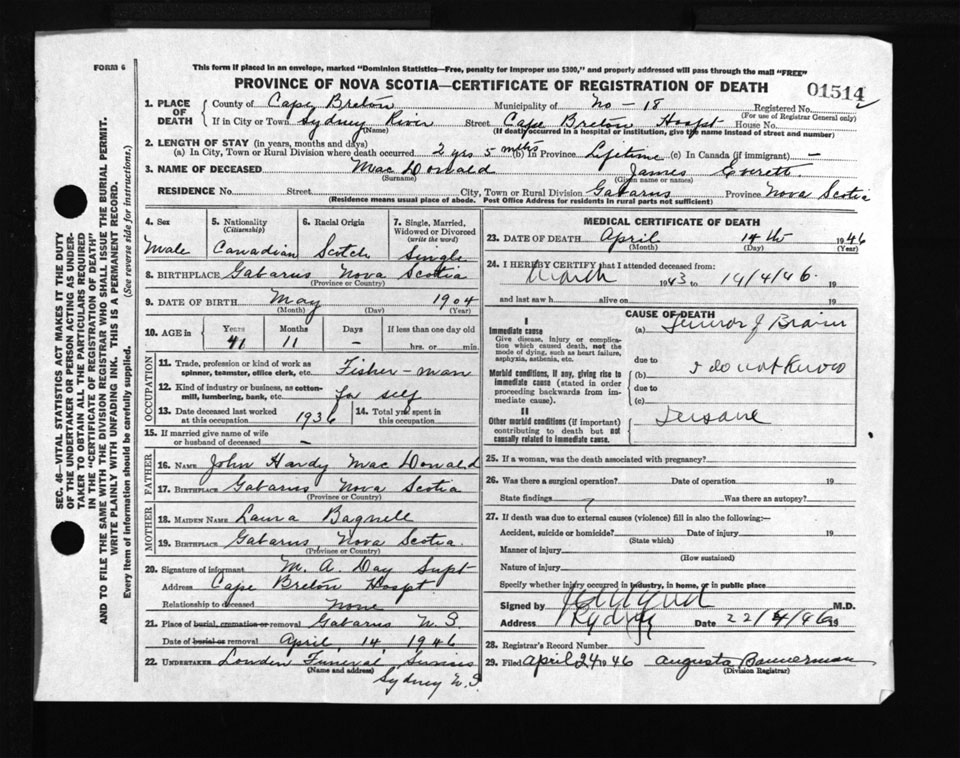 FORM 6
This form if placed in an envelope, marked "Dominion Statistics—Free, penalty for improper use $300," and properly addressed will pass through the mail "FREE"
PROVINCE OF NOVA SCOTIA—CERTIFICATE OF REGISTRATION OF DEATH
01514
1. PLACE OF DEATH
County of Cape Breton Municipality of No - 18 Registered No.
(For use of Registrar General only)
If in City or Town Sydney River Street Cape Breton Hospt House No.
(Name) (If death occurred in a hospital or institution, give the name instead of street and number)
2. LENGTH OF STAY (in years, months and days)
(a) In City, Town or Rural Division where death occurred 2 yrs 5 mths (b) In Province Lifetime (c) In Canada (if immigrant) —
3. NAME OF DECEASED Mac Donald James Everett
(Surname) (Given name or names)
RESIDENCE No. Street City, Town or Rural Division Gabarus Province Nova Scotia
(Residence means usual place of abode. Post Office Address for residents in rural parts not sufficient)
4. Sex
Male
5. Nationality
(Citizenship)
Canadian
6. Racial Origin
Scotch
7. Single, Married, Widowed or Divorced
(write the word)
Single
8. BIRTHPLACE Gabarus Nova Scotia
(Province or Country)
9. DATE OF BIRTH May 1904
(Month) (Day) (Year)
10. AGE in
Years Months Days If less than one day old
41 11 - hrs. or min.
OCCUPATION
11. Trade, profession or kind of work as spinner, teamster, office clerk, etc. Fisher-man
12. Kind of industry or business, as cotton-mill, lumbering, bank, etc. for self
13. Date deceased last worked at this occupation 1936
14. Total yrs. spent in this occupation
15. If married give name of wife or husband of deceased —
FATHER
16. NAME John Hardy Mac Donald
17. BIRTHPLACE Gabarus Nova Scotia
(Province or Country)
MOTHER
18. MAIDEN NAME Laura Bagnell
19. BIRTHPLACE Gabarus Nova Scotia.
(Province or Country)
20. Signature of informant M. A. Day Supt
Address Cape Breton Hospt.
Relationship to deceased None
21. Place of burial, cremation or removal Gabarus N.S.
Date of burial or removal April 14, 1946
22. UNDERTAKER Louden Funeral
(Name and address)
Sydney N.S.
MEDICAL CERTIFICATE OF DEATH
23. DATE OF DEATH April 14th 1946
(Month) (Day) (Year)
24. I HEREBY CERTIFY that I attended deceased from:
March 1943 to 14/4/46. 19
and last saw h alive on 19
CAUSE OF DEATH
I
Immediate cause
Give disease, injury or complication which caused death, not the mode of dying, such as heart failure, asphyxia, asthenia, etc.
(a) Tumor of Brain
due to
Morbid conditions, if any, giving rise to immediate cause (stated in order proceeding backwards from immediate cause).
(b) I do not know
due to
(c)
II
Other morbid conditions (if important) contributing to death but not causally related to immediate cause.
Insane
25. If a woman, was the death associated with pregnancy?
26. Was there a surgical operation? Date of operation 19
State findings Was there an autopsy?
27. If death was due to external causes (violence) fill in also the following:—
Accident, suicide or homicide? Date of injury 19
(State which)
Manner of injury
(How sustained)
Nature of injury
Specify whether injury occurred in industry, in home, or in public place
Signed by M.D.
Address Sydney Date 22/4/46 19
28. Registrar's Record Number
29. Filed April 24 1946 Augusta Bannerman
(Division Registrar)
SEC. 46—VITAL STATISTICS ACT MAKES IT THE DUTY
OF THE UNDERTAKER OR PERSON ACTING AS UNDER-
TAKER TO OBTAIN ALL THE PARTICULARS REQUIRED
IN THE "CERTIFICATE OF REGISTRATION OF DEATH"
AND TO FILE THE SAME WITH THE DIVISION REGISTRAR WHO SHALL ISSUE THE BURIAL PERMIT.
WRITE PLAINLY WITH UNFADING INK. THIS IS A PERMANENT RECORD.
Every item of information should be carefully supplied. (See reverse side for instructions.)